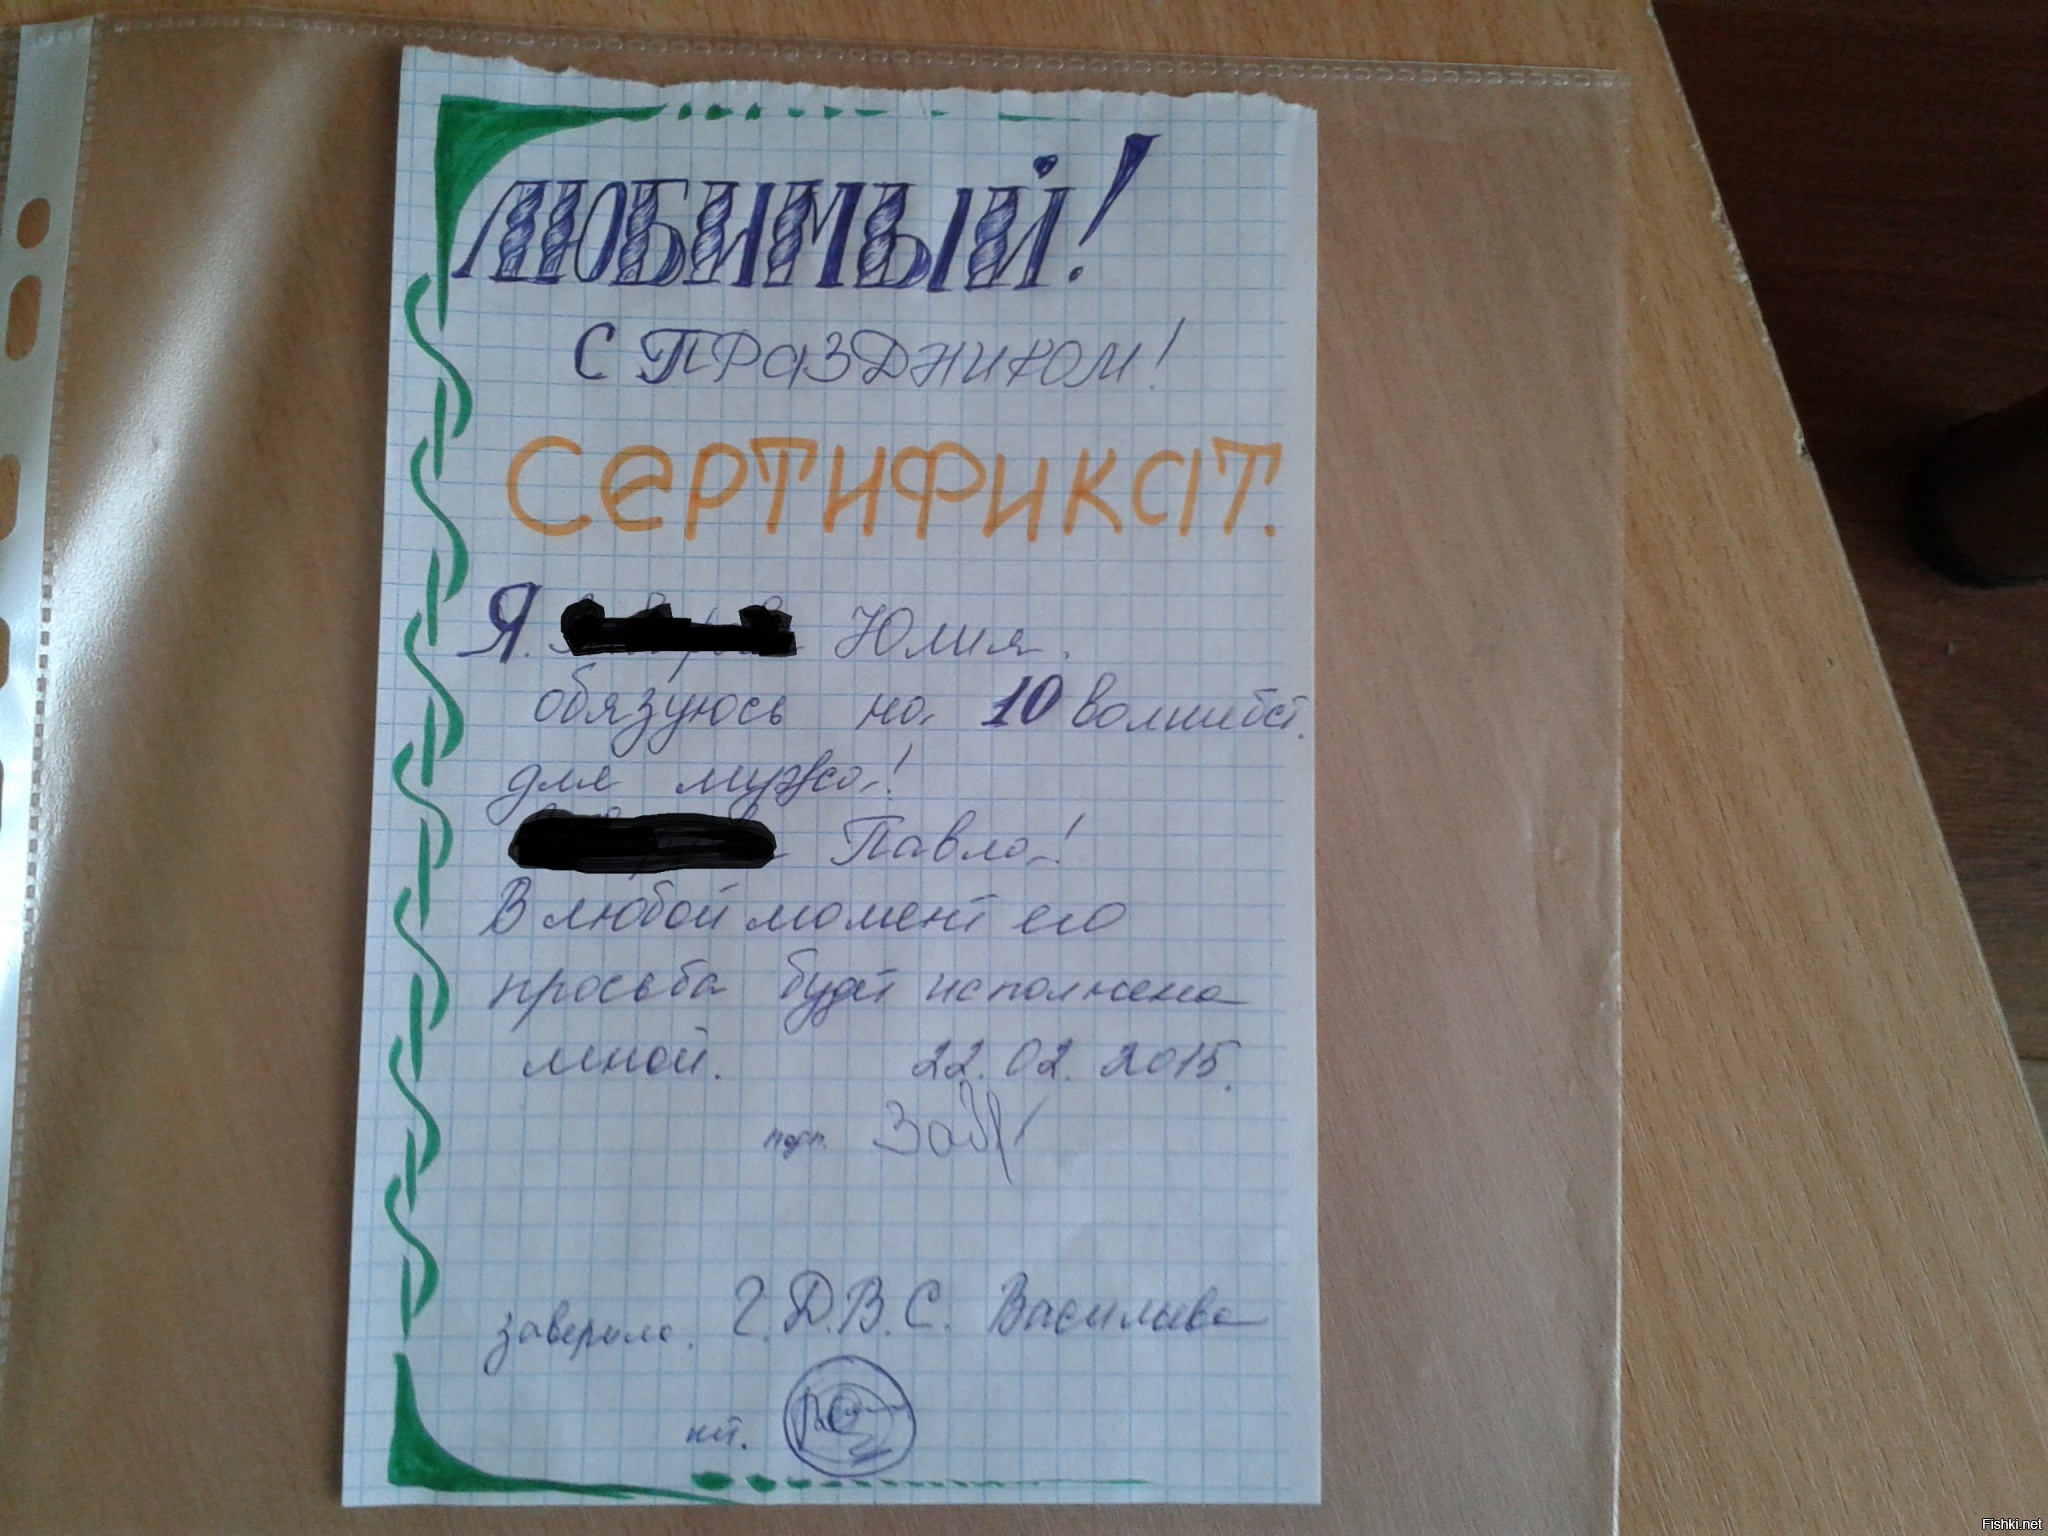 ЛЮБИМЫЙ!
С ПРАЗДНИКОМ!
Сертификат.
Я. Юлия.
обязуюсь на 10 волшебст.
для мужа!
Павла!
В любой момент его
просьба будет исполнена
мной. 22.02.2015.
подп.
заверила. Г.Д.В.С. Васильева
Fishki.net